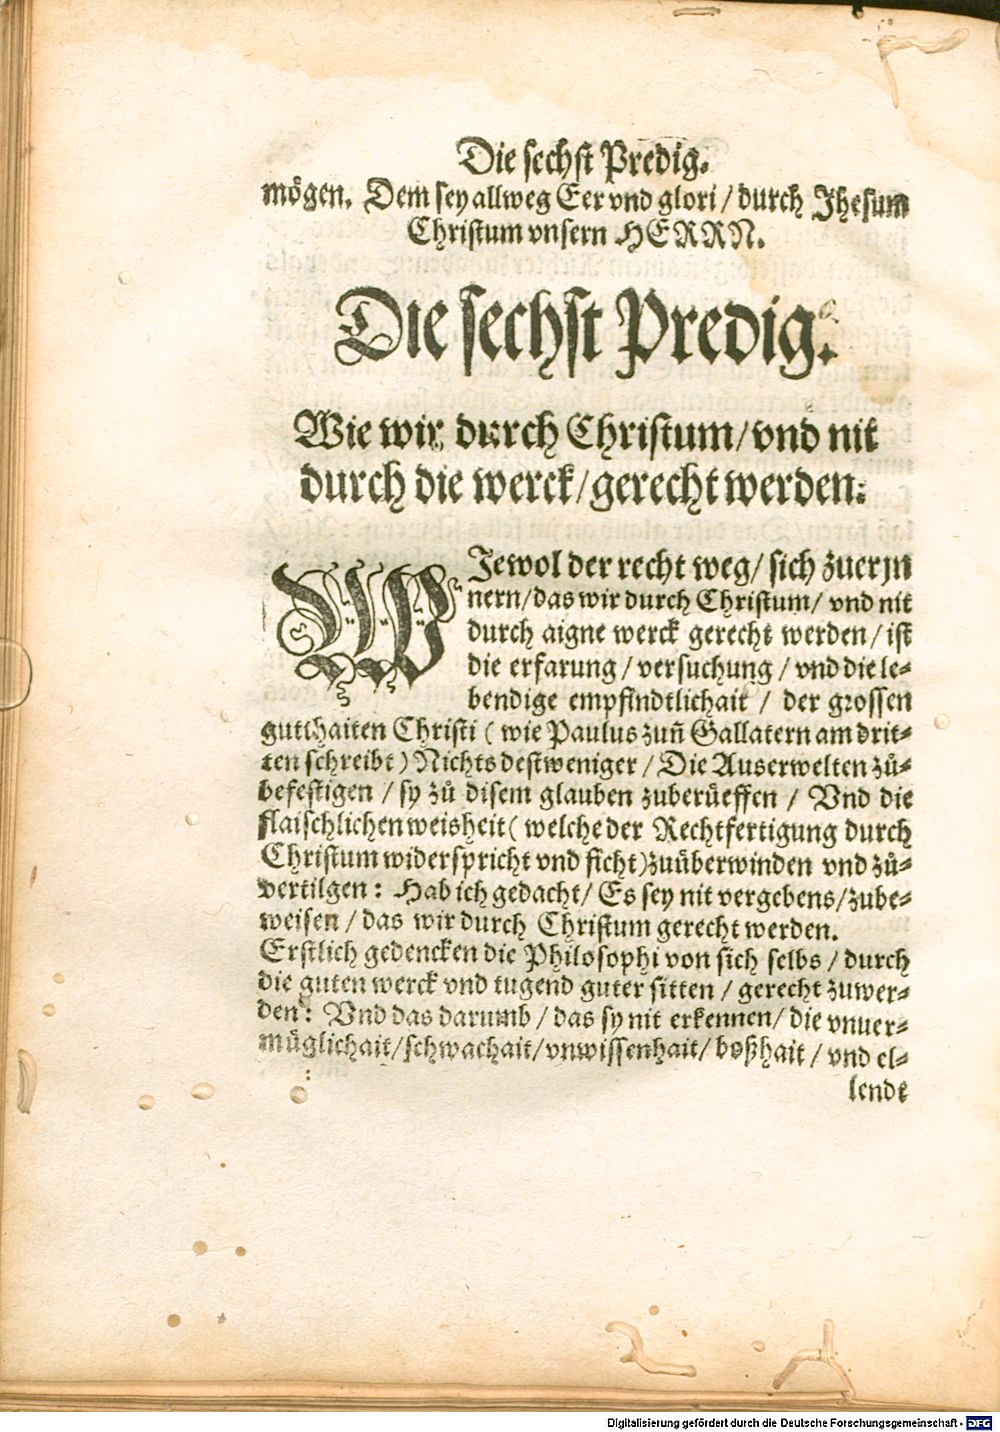 Die sechst Predig.
mögen. Dem sey allweg Eer vnd glori / durch Jhesum
Christum vnsern HERRN.
Die sechst Predig.
Wie wir durch Christum / vnd nit
durch die werck / gerecht werden.
WJewol der recht weg / sich zuerjn
nern / das wir durch Christum / vnd nit
durch aigne werck gerecht werden / ist
die erfarung / versuchung / vnd die le-
bendige empfindtlichait / der grossen
gutthaiten Christi ( wie Paulus zuñ Gallatern am drit-
ten schreibt ) Nichts destweniger / Die Auserwelten zů-
befestigen / sy zů disem glauben zuberüeffen / Vnd die
flaischlichen weisheit ( welche der Rechtfertigung durch
Christum widerspricht vnd ficht) zuüberwinden vnd zů-
vertilgen : Hab ich gedacht / Es sey nit vergebens / zube-
weisen / das wir durch Christum gerecht werden.
Erstlich gedencken die Philosophi von sich selbs / durch
die guten werck vnd tugend guter sitten / gerecht zuwer-
den : Vnd das darumb / das sy nit erkennen / die vnuer-
müglichait / schwachait / vnwissenhait / boßhait / vnd el-
lende
Digitalisierung gefördert durch die Deutsche Forschungsgemeinschaft - DFG